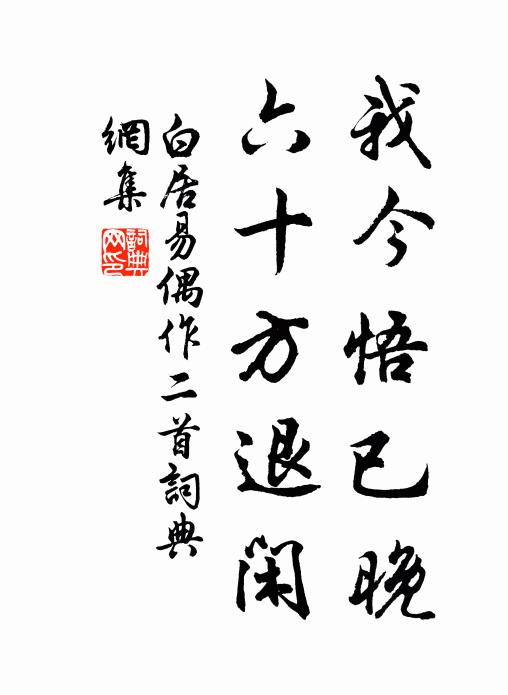 我今悟已晚
六十方退闲
白居易偶作二首詞典
網集
詞典網印